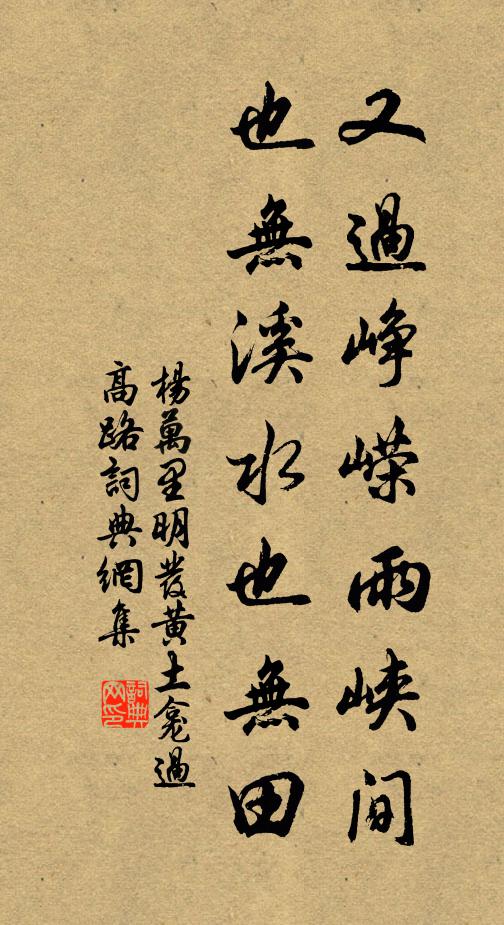 又過崢嶸雨峽間
也無溪水也無田
楊萬里明發黃土龛過
高路詞典網集
詞典网印